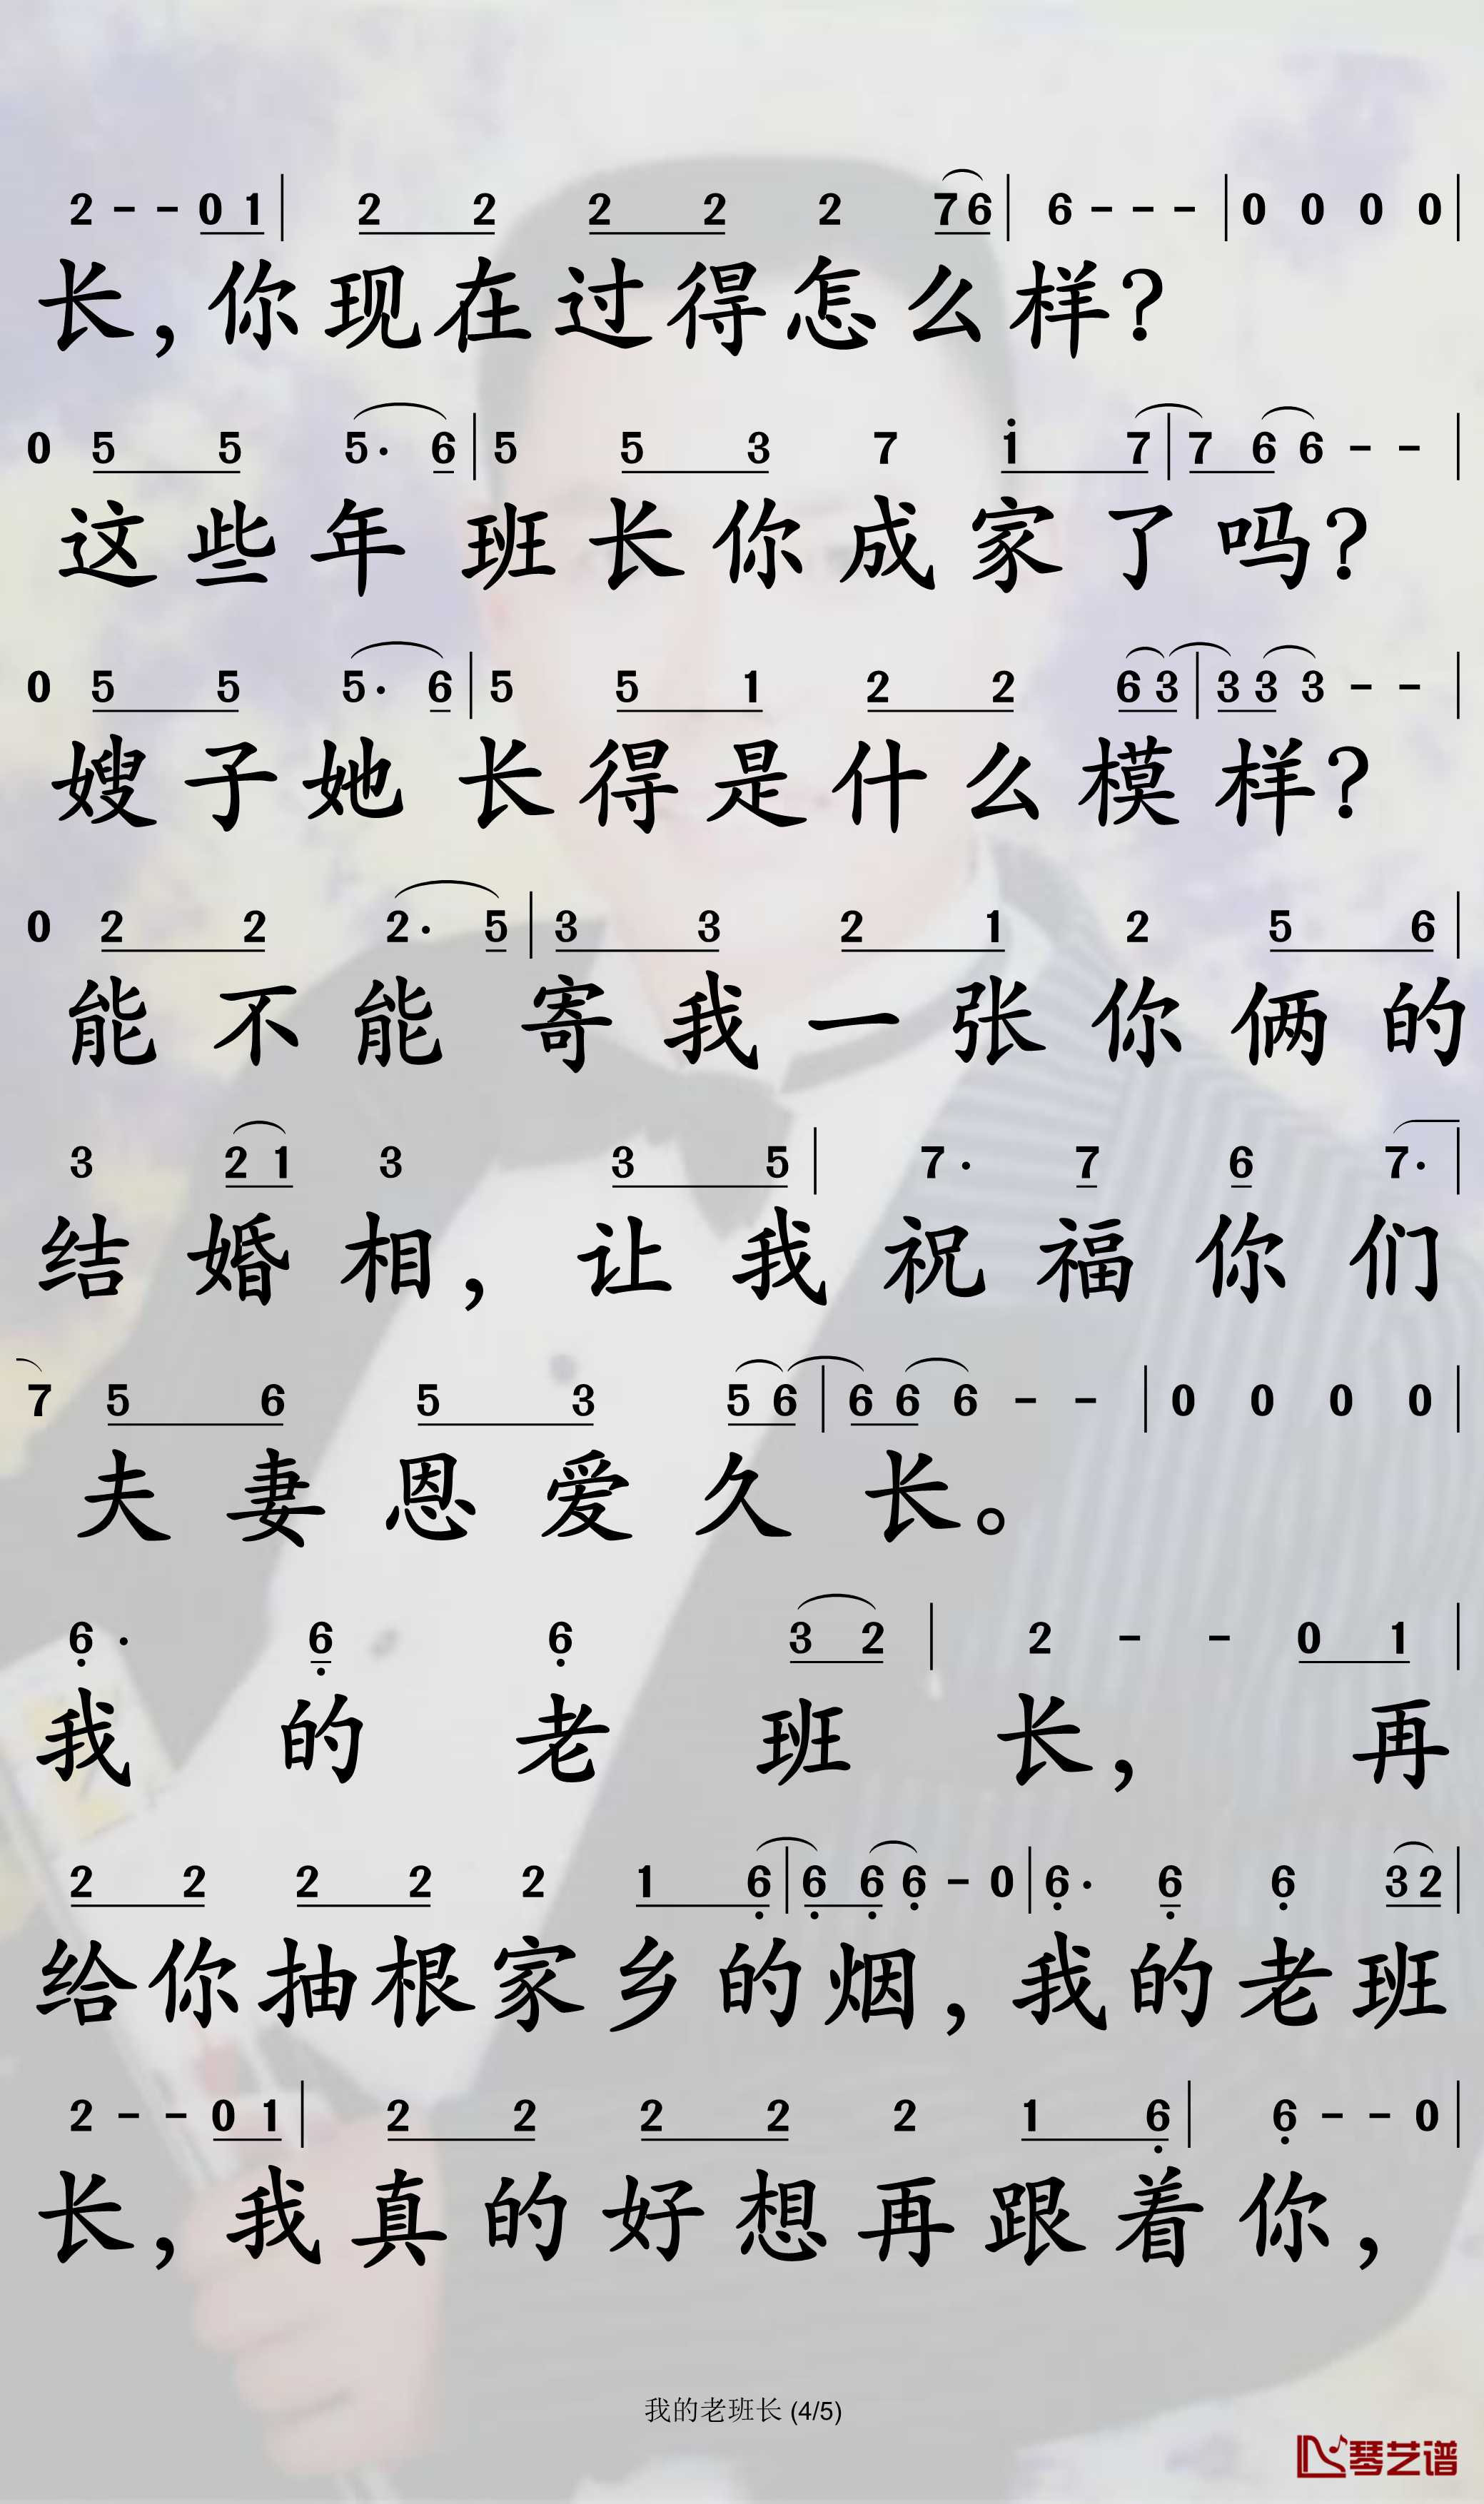 2 - - 0 1 | 2 2 2 2 2 7 6 | 6 - - - | 0 0 0 0 |
长，你现在过得怎么样？
0 5 5 5· 6 | 5 5 3 7 i 7 | 7 6 6 - - |
这些年班长你成家了吗？
0 5 5 5· 6 | 5 5 1 2 2 6 3 | 3 3 3 - - |
嫂子她长得是什么模样？
0 2 2 2· 5 | 3 3 2 1 2 5 6 |
能不能寄我一张你俩的
3 2 1 3 3 5 | 7· 7 6 7· |
结婚相，让我祝福你们
7 5 6 5 3 5 6 | 6 6 6 - - | 0 0 0 0 |
夫妻恩爱久长。
6· 6 6 3 2 | 2 - - 0 1 |
我的老班长，再
2 2 2 2 2 1 6 | 6 6 6 - 0 | 6· 6 6 3 2 |
给你抽根家乡的烟，我的老班
2 - - 0 1 | 2 2 2 2 2 1 6 | 6 - - 0 |
长，我真的好想再跟着你，
我的老班长 (4/5)
琴艺谱